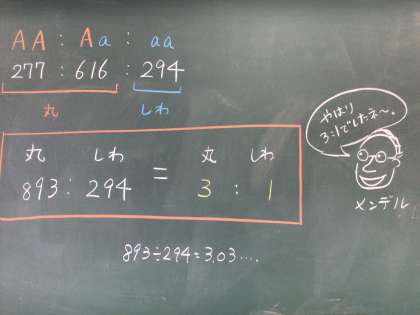 AA : Aa : aa
277 : 616 : 294
丸 しわ
丸 しわ 丸 しわ
893 : 294 = 3 : 1
893÷294=3.03....
やはり
3:1でしたネ〜。
メンデル